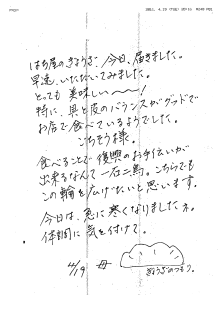 はち屋のぎょうざ、今日、届きました。
早速、いただいてみました。
とっても 美味しい〜〜!
特に、具と皮のバランスがグッドで
お店で食べているようでした。
ごちそう様。
食べることで復興のお手伝いが
出来るなんて一石二鳥。こちらでも
この輪を広げたいと思います。
今日は、急に寒くなりましたネ。
体調に 気を付けて。
4/19 母
ぎょうざのつもり。